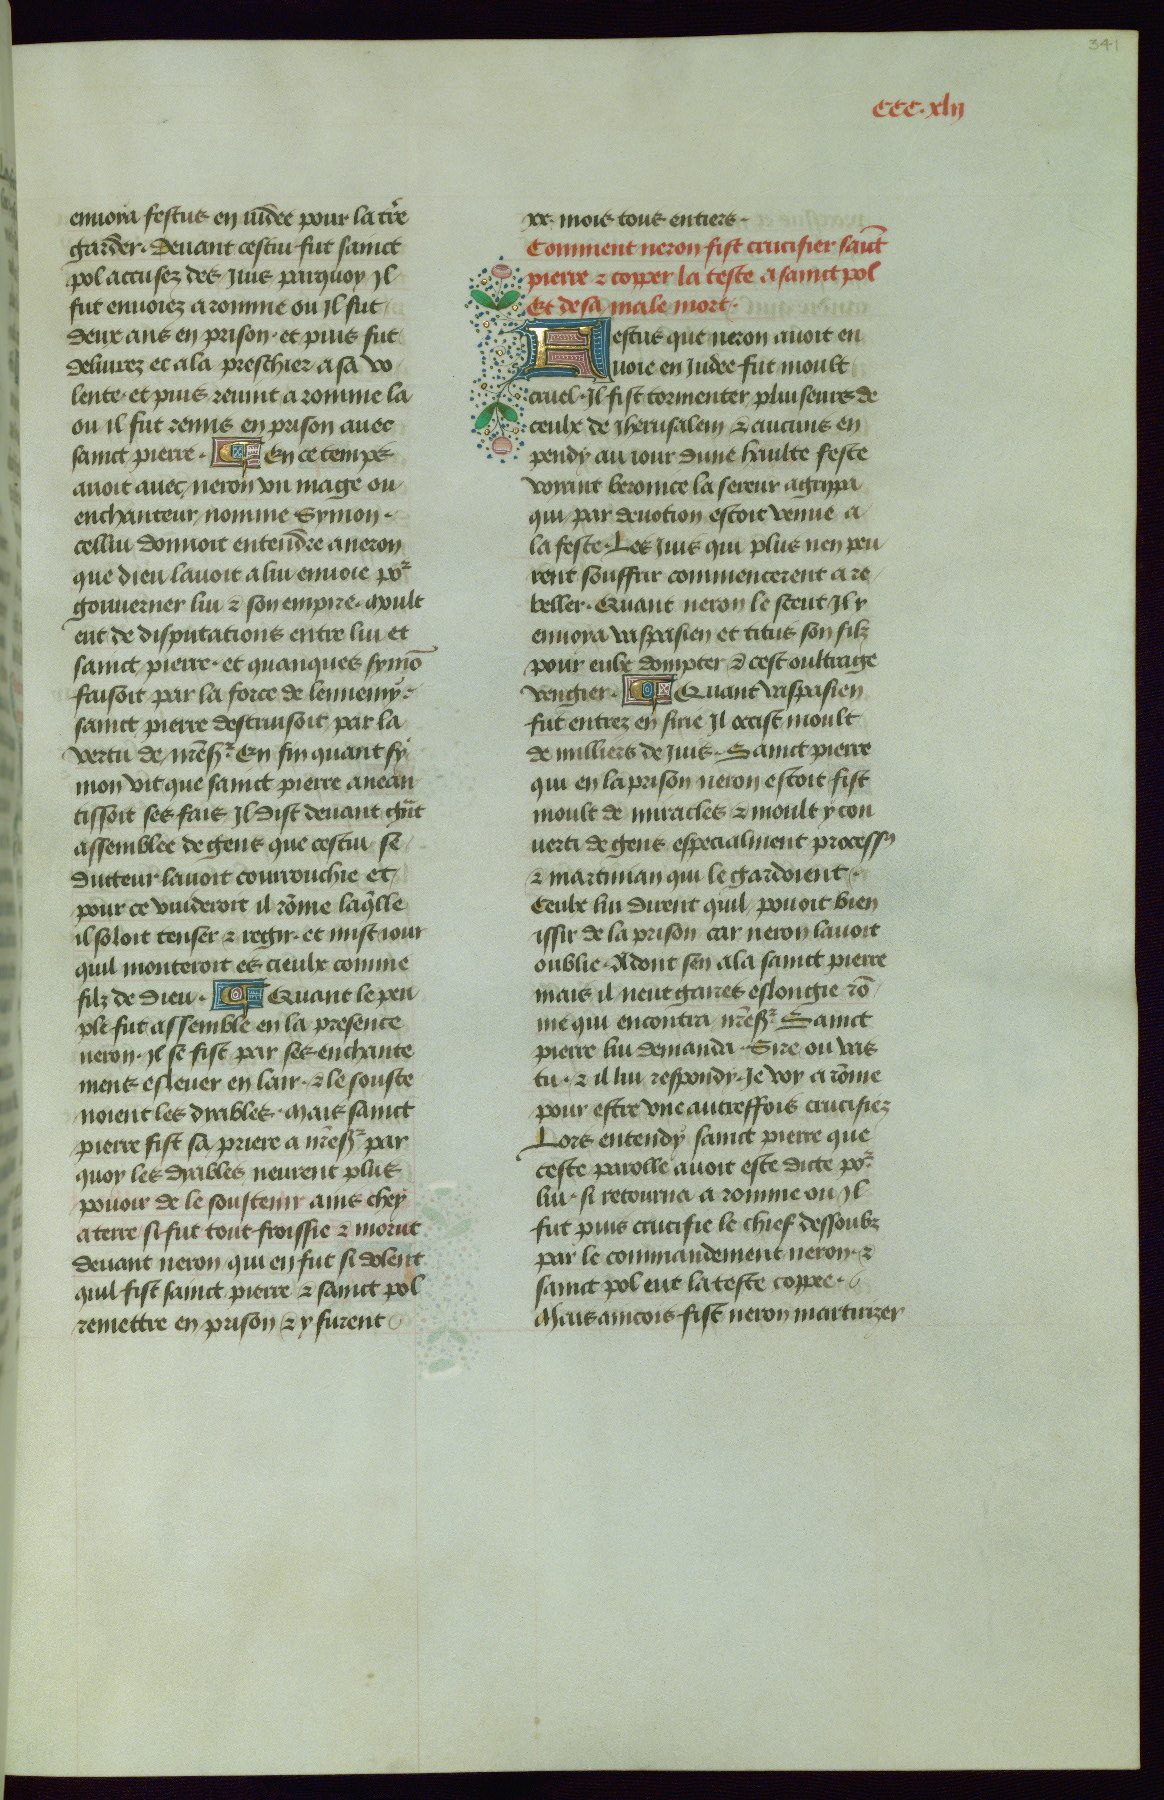 341
CCC.xlij
enuoya festus en iudee pour la tr̄e
garder. Deuant cestui fut sainct
pol accusez des Juis parquoy Il
fut enuoiez a romme ou Il fut
deux ans en prison. et puis fut
deliurez et ala preschier a sa vo
lente. et puis reuint a romme la
ou il fut remis en prison auec
sainct pierre. En ce temps
auoit auec neron vn mage ou
enchanteur nomme Symon.
cellui donnoit entendre a neron
que dieu lauoit a lui enuoie poᷣ
gouuerner lui ⁊ son empire. Moult
eut de disputations entre lui et
sainct pierre. et quanques symō
faisoit par la force de lennemy.
sainct pierre destruisoit par la
vertu de nr̄e sᷣ. En fin quant sy
mon vit que sainct pierre anean
tissoit ses fais Il dist deuant gn̄t
assemblee de gens que cestui se
ducteur lauoit courrouchie et
pour ce vuideroit il rōme laq̄lle
il soloit tenser ⁊ regir. et mist iour
quil monteroit es cieulx comme
filz de dieu. Quant le peu
ple fut assemble en la presence
neron. Il se fist par ses enchante
mens esleuer en lair. ⁊ le souste
noient les dyables. Mais sainct
pierre fist sa priere a nr̄e sᷣ par
quoy les dyables neurent plus
pouoir de le soustenir ains chey
a terre si fut tout froissie ⁊ morut
deuant neron qui en fut si dolent
quil fist sainct pierre ⁊ sainct pol
remettre en prison ⁊ y furent
xx. mois tous entiers.
Comment neron fist crucifier saīct
pierre ⁊ copper la teste a sainct pol
Et de sa male mort.
Festus que neron auoit en
uoie en Judee fut moult
cruel. Il fist tormenter pluiseurs de
ceulx de Jherusalem ⁊ aucuns en
pendy au iour dune haulte feste
voyant beronice la sereur agripa
qui par deuotion estoit venue a
la feste. Les Juis qui plus nen peu
rent souffrir commencerent a re
beller. Quant neron le sceut Il y
enuoya vaspasien et titus son filz
pour eulx dompter ⁊ cest oultrage
vengier. Quant vaspasien
fut entrez en sirie Il occist moult
de milliers de Juis. Sainct pierre
qui en la prison neron estoit fist
moult de miracles ⁊ moult y con
uerti de gens especialment process9
⁊ martinian qui le gardoient.
Ceulx lui dirent quil pouoit bien
issir de la prison car neron lauoit
oublie. Adont sen ala sainct pierre
mais il neut gaires eslongie rō
me qui encontra nr̄e sᷣ. Sainct
pierre lui demanda. Sire ou vas
tu. ⁊ il lui respondy. Je voy a rōme
pour estre vne autreffois crucifiez
Lors entendy sainct pierre que
ceste parolle auoit este dicte poᷣ
lui. si retourna a romme ou Il
fut puis crucifie le chief dessoubz
par le commandement neron. ⁊
sainct pol eut la teste coppee.
Mais aincois fist neron marturizer